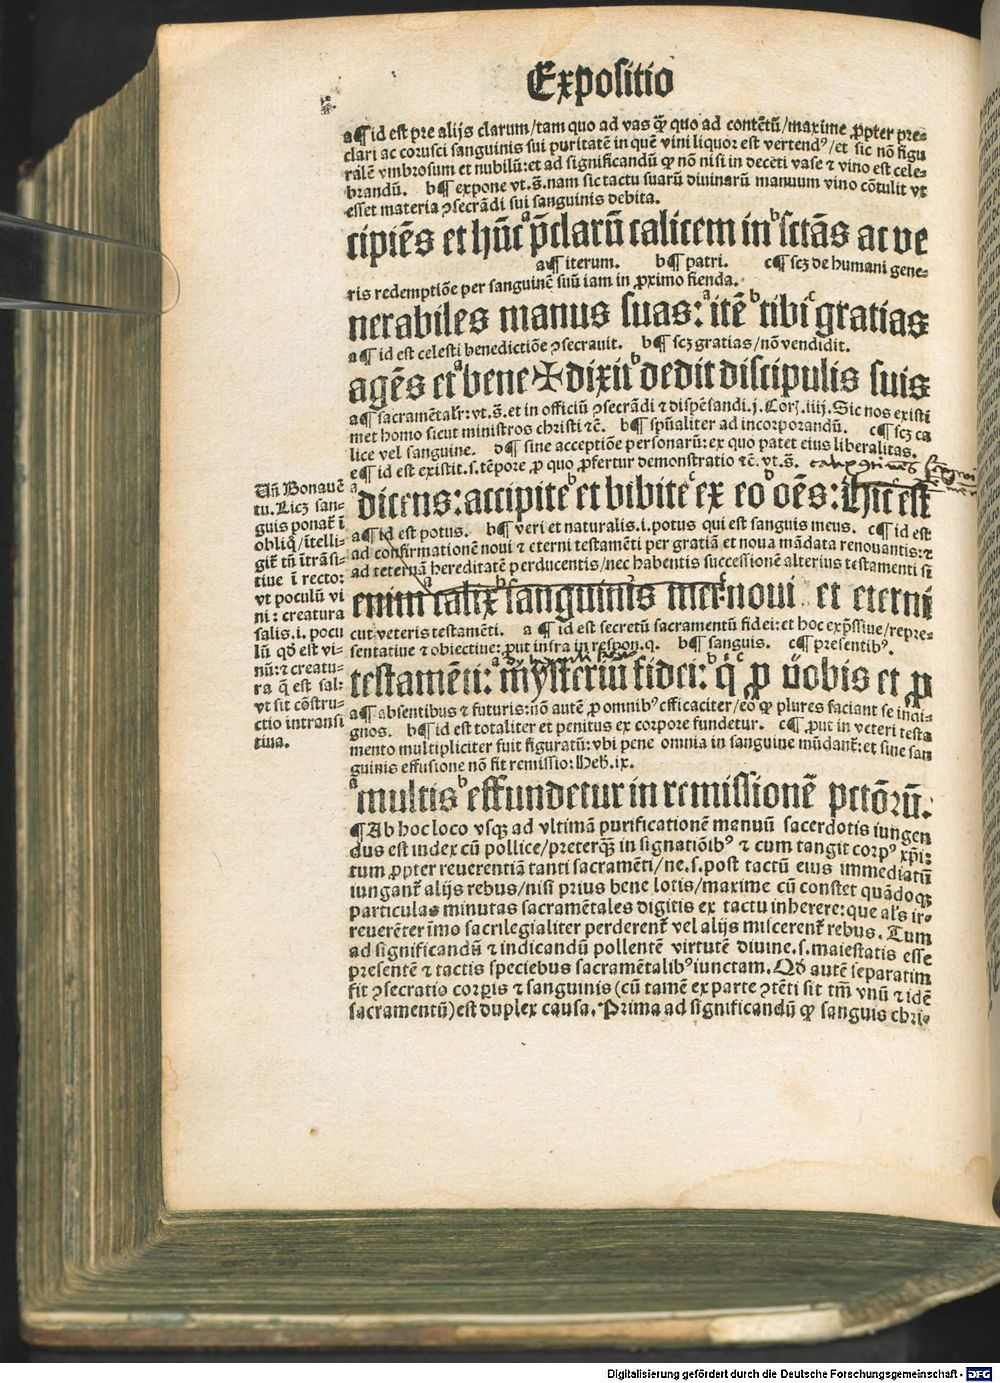 Expositio
a¶ id est pre alijs clarum/tam quo ad vas qȝ quo ad contētū/maxime ꝓpter pre-
clari ac corusci sanguinis sui puritatē in quē vini liquor est vertendꝰ/et sic nō figu
ralē vmbrosum et nubilū: et ad significandū ꝙ nō nisi in decēti vase ⁊ vino est cele-
brandū. b¶ expone vt.s̄. nam sic tactu suarū diuinarū manuum vino cōtulit vt
esset materia ꝯsecrādi sui sanguinis debita.
cipiēs et hūc ᵃp̄clarū calicem in ᵇsctās ac ve
a¶ iterum. b¶ patri. c¶ scȝ de humani gene-
ris redemptiōe per sanguinē suū iam in ꝓximo fienda.
nerabiles manus suas: ᵃitē ᵇtibi ᶜgratias
a¶ id est celesti benedictiōe ꝯsecrauit. b¶ scȝ gratias/nō vendidit.
agēs et ᵃbene✠dixit ᵇdedit discipulis suis
a¶ sacramētalr̄: vt.s̄. et in officiū ꝯsecrādi ⁊ dispēsandi.j. Corꝭ.iiij. Sic nos existi
met homo sicut ministros christi ⁊c̄. b¶ sp̄ualiter ad incorporandū. c¶ scȝ ca
lice vel sanguine. d¶ sine acceptiōe personarū: ex quo patet eius liberalitas.
e¶ id est existit.s.tēpore ꝓ quo ꝓfertur demonstratio ⁊c̄. vt.s̄.
ᵃdicens: accipite ᵇet bibite ᶜex eo ᵈoēs: ᵉHic est
a¶ id est potus. b¶ veri et naturalis.i.potus qui est sanguis meus. c¶ id est
ad confirmationē noui ⁊ eterni testamēti per gratiā et noua mādata renouantis: ⁊
ad eternā hereditatē perducentis/nec habentis successionē alterius testamenti si
enim ᵃcalix ᵇsanguinis mei: ᶜnoui et eterni
cut veteris testamēti. a¶ id est secretū sacramentū fidei: et hoc exp̄ssiue/repre-
sentatiue ⁊ obiectiue: ꝓut infra in respon.q. b¶ sanguis. c¶ presentibꝰ.
testamēti: ᵃmysteriū fidei: ᵇq̇ ᶜꝓ uobis et ꝓ
a¶ absentibus ⁊ futuris: nō autē ꝓ omnibꝰ efficaciter/eo ꝙ plures faciant se indi-
gnos. b¶ id est totaliter et penitus ex corpore fundetur. c¶ ꝓut in veteri testa
mento multipliciter fuit figuratū: vbi pene omnia in sanguine mūdant̄: et sine san
guinis effusione nō fit remissio: Heb̄.ix.
ᵃmultis ᵇeffundetur in remissionē pctōrū.
¶Ab hoc loco vsqȝ ad vltimā purificationē manuū sacerdotis iungen
dus est index cū pollice/preterqȝ in signatiōibꝰ ⁊ cum tangit corpꝰ xp̄i:
tum ꝓpter reuerentiā tanti sacramēti/ne.s.post tactū eius immediatū
iungant̄ alijs rebus/nisi prius bene lotis/maxime cū constet quādoqȝ
particulas minutas sacramētales digitis ex tactu inherere: que als̄ ir-
reuerēter īmo sacrilegialiter perderent̄ vel alijs miscerent̄ rebus. Tum
ad significandū ⁊ indicandū pollentē virtutē diuine.s.maiestatis esse
presentē ⁊ tactis speciebus sacramētalibꝰ iunctam. Qd autē separatim
fit ꝯsecratio corpis ⁊ sanguinis (cū tamē ex parte ꝯtēti sit tm̄ vnū ⁊ idē
sacramentū) est duplex causa. Prima ad significandū ꝙ sanguis chri-
Un̄ Bonauē
tu. Licȝ san-
guis ponat̄ ī
obliq̇/ītelli-
git̄ tn̄ ītrāsi-
tiue ī recto:
vt poculū vi
ni: creatura
salis.i. pocu
lū qd est vi-
nū: ⁊ creatu-
ra q̄ est sal:
vt sit cōstru-
ctio intransi
tiua.
Digitalisierung gefördert durch die Deutsche Forschungsgemeinschaft - DFG